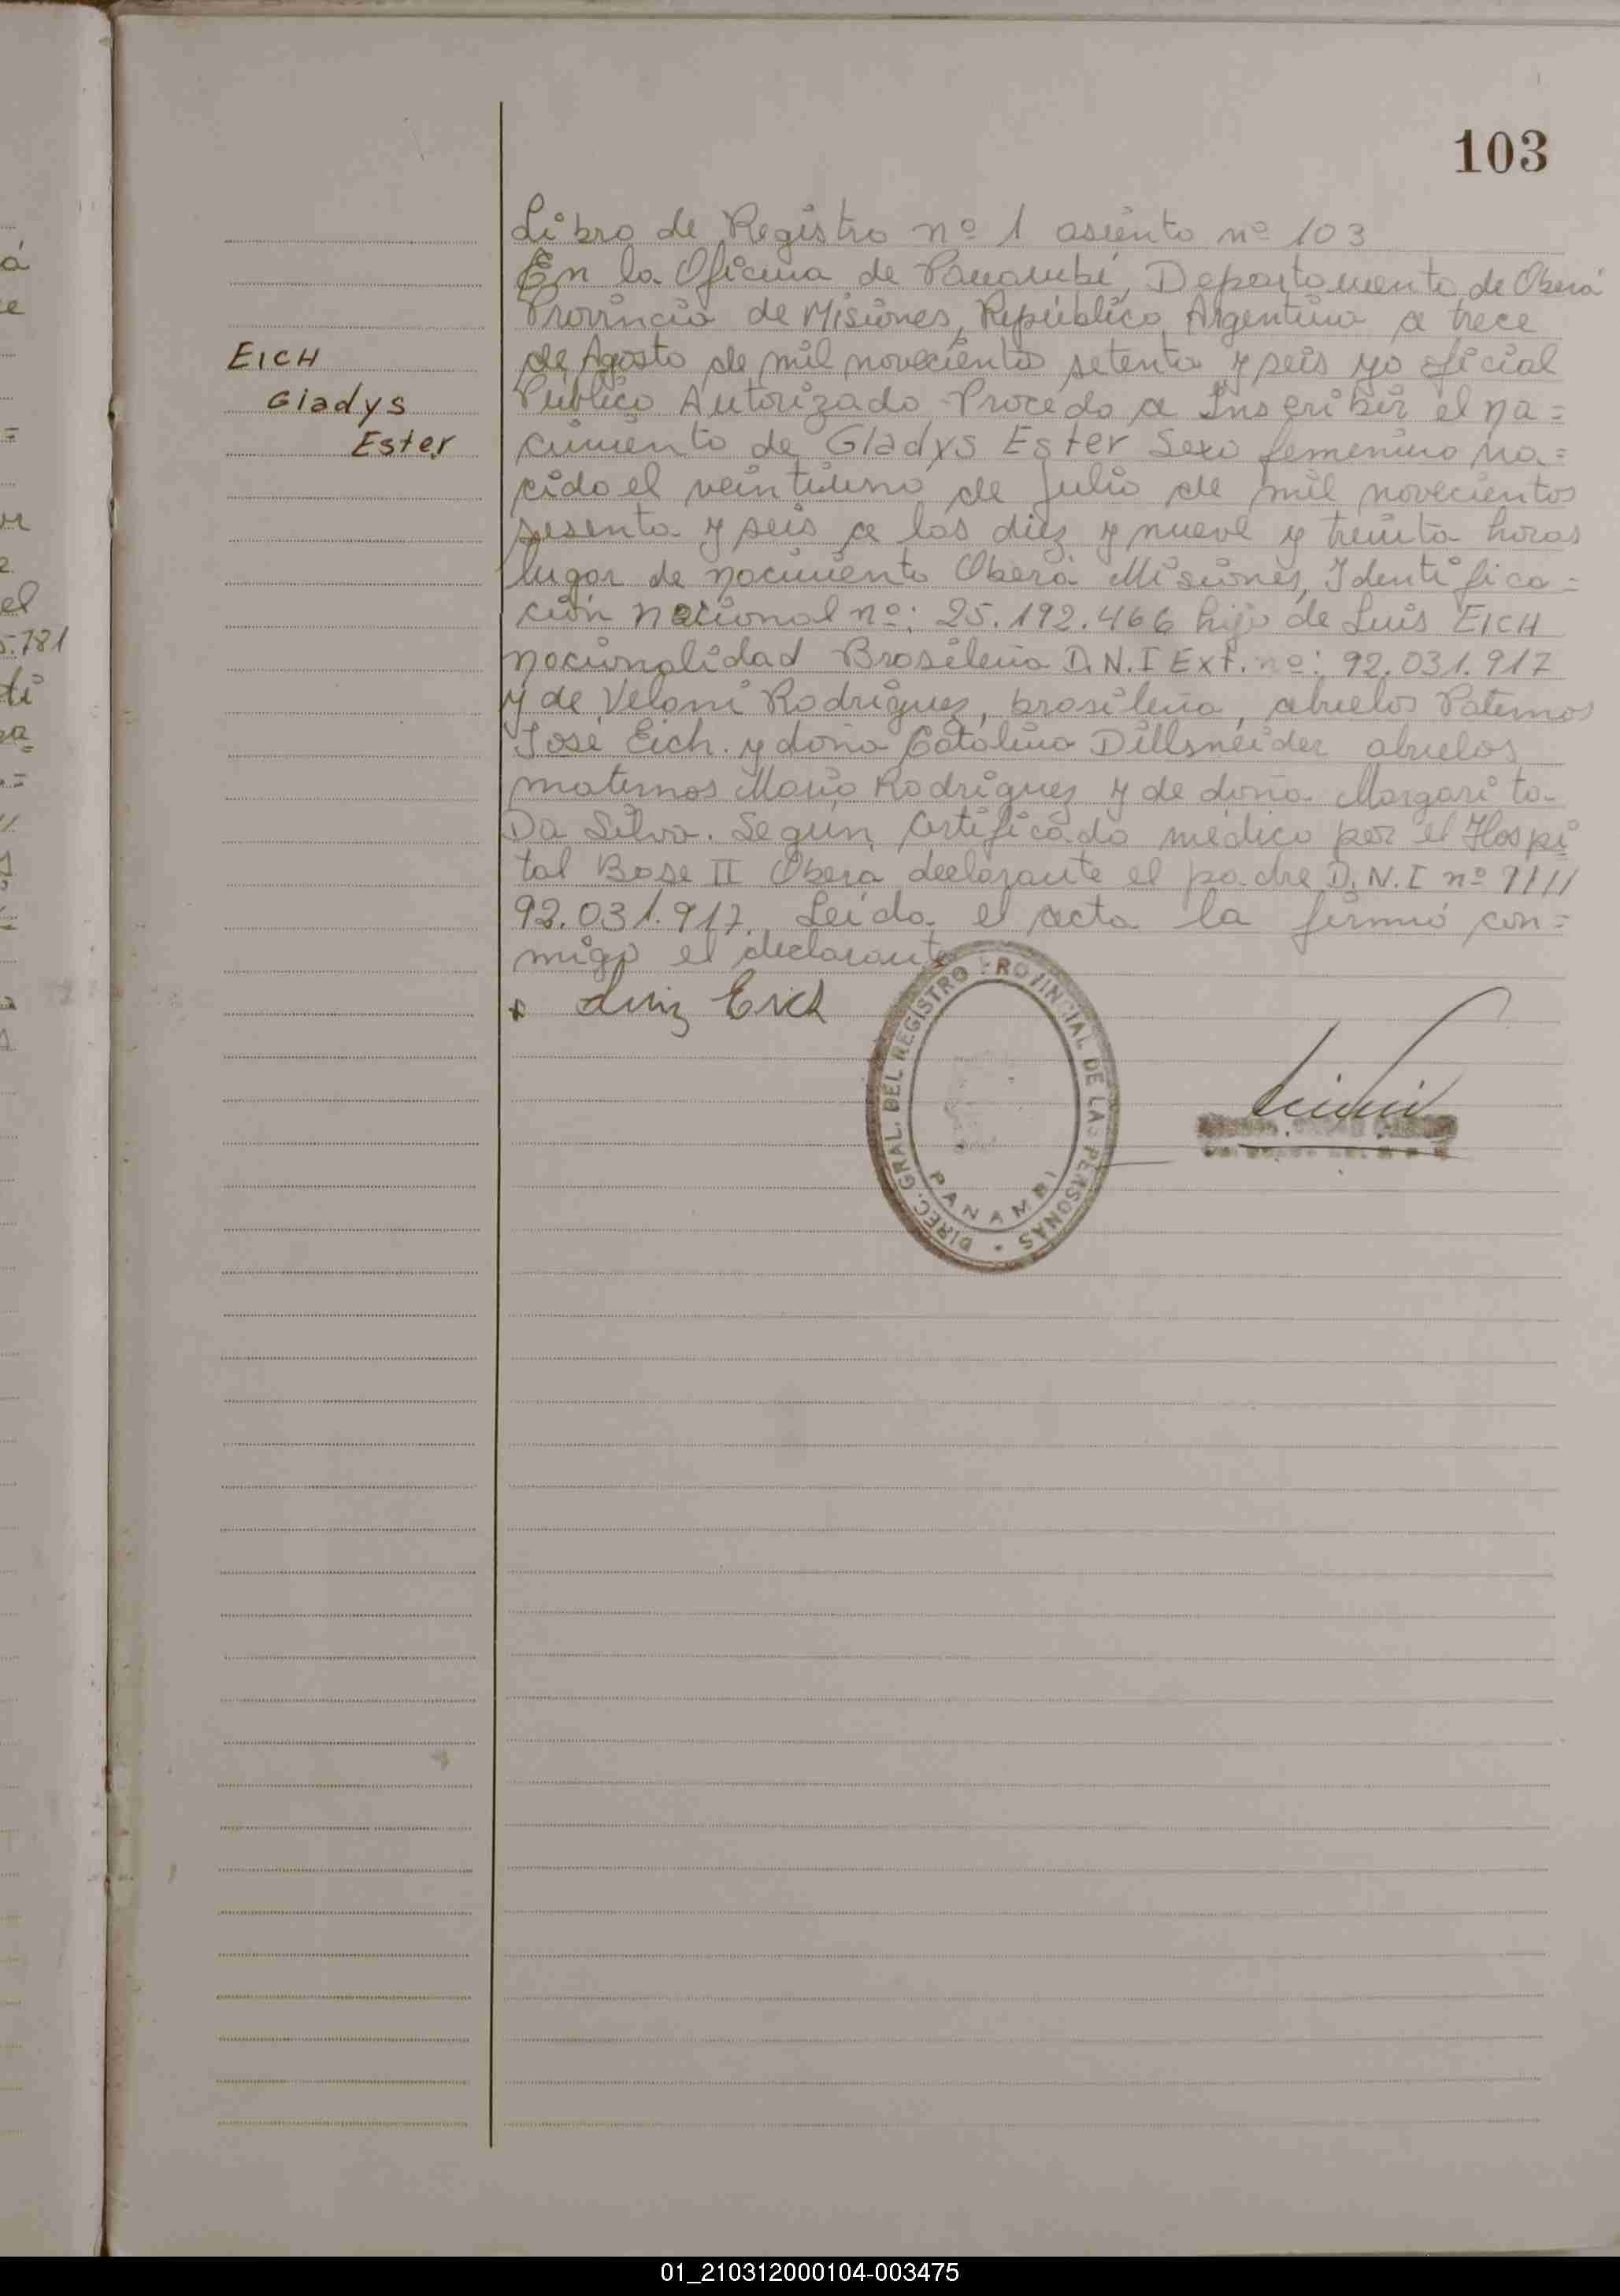 103
Libro de Registro nº 1 asiento nº 103
En la Oficina de Panambí, Departamento de Oberá
Provincia de Misiones, República Argentina a trece
EICH
de Agosto de mil novecientos setenta y seis yo oficial
Gladys
Público Autorizado Procedo a Inscribir el na=
Ester
cimiento de Gladys Ester Sexo femenino na=
cido el veintiuno de Julio de mil novecientos
sesenta y seis a las diez y nueve y treinta horas
lugar de nacimiento Oberá Misiones, Identifica=
ción Nacional nº: 25.192.466 hijo de Luis EICH
nacionalidad Brasileña D.N.I Ext. nº: 92.031.917
y de Veloni Rodriguez, brasileña, abuelos Paternos
José Eich. y doña Catalina Dillsneider abuelos
maternos Mario Rodriguez y de doña Margarita
Da Silva. Según Certificado médico por el Hospi
tal Base II Oberá declarante el padre D.N.I nº
92.031.917. Leída el acta la firmó con=
migo el declarante
x Luiz Eich
DIREC. GRAL. DEL REGISTRO PROVINCIAL DE LAS PERSONAS
PANAMBI
á
el
5.781
01_210312000104-003475